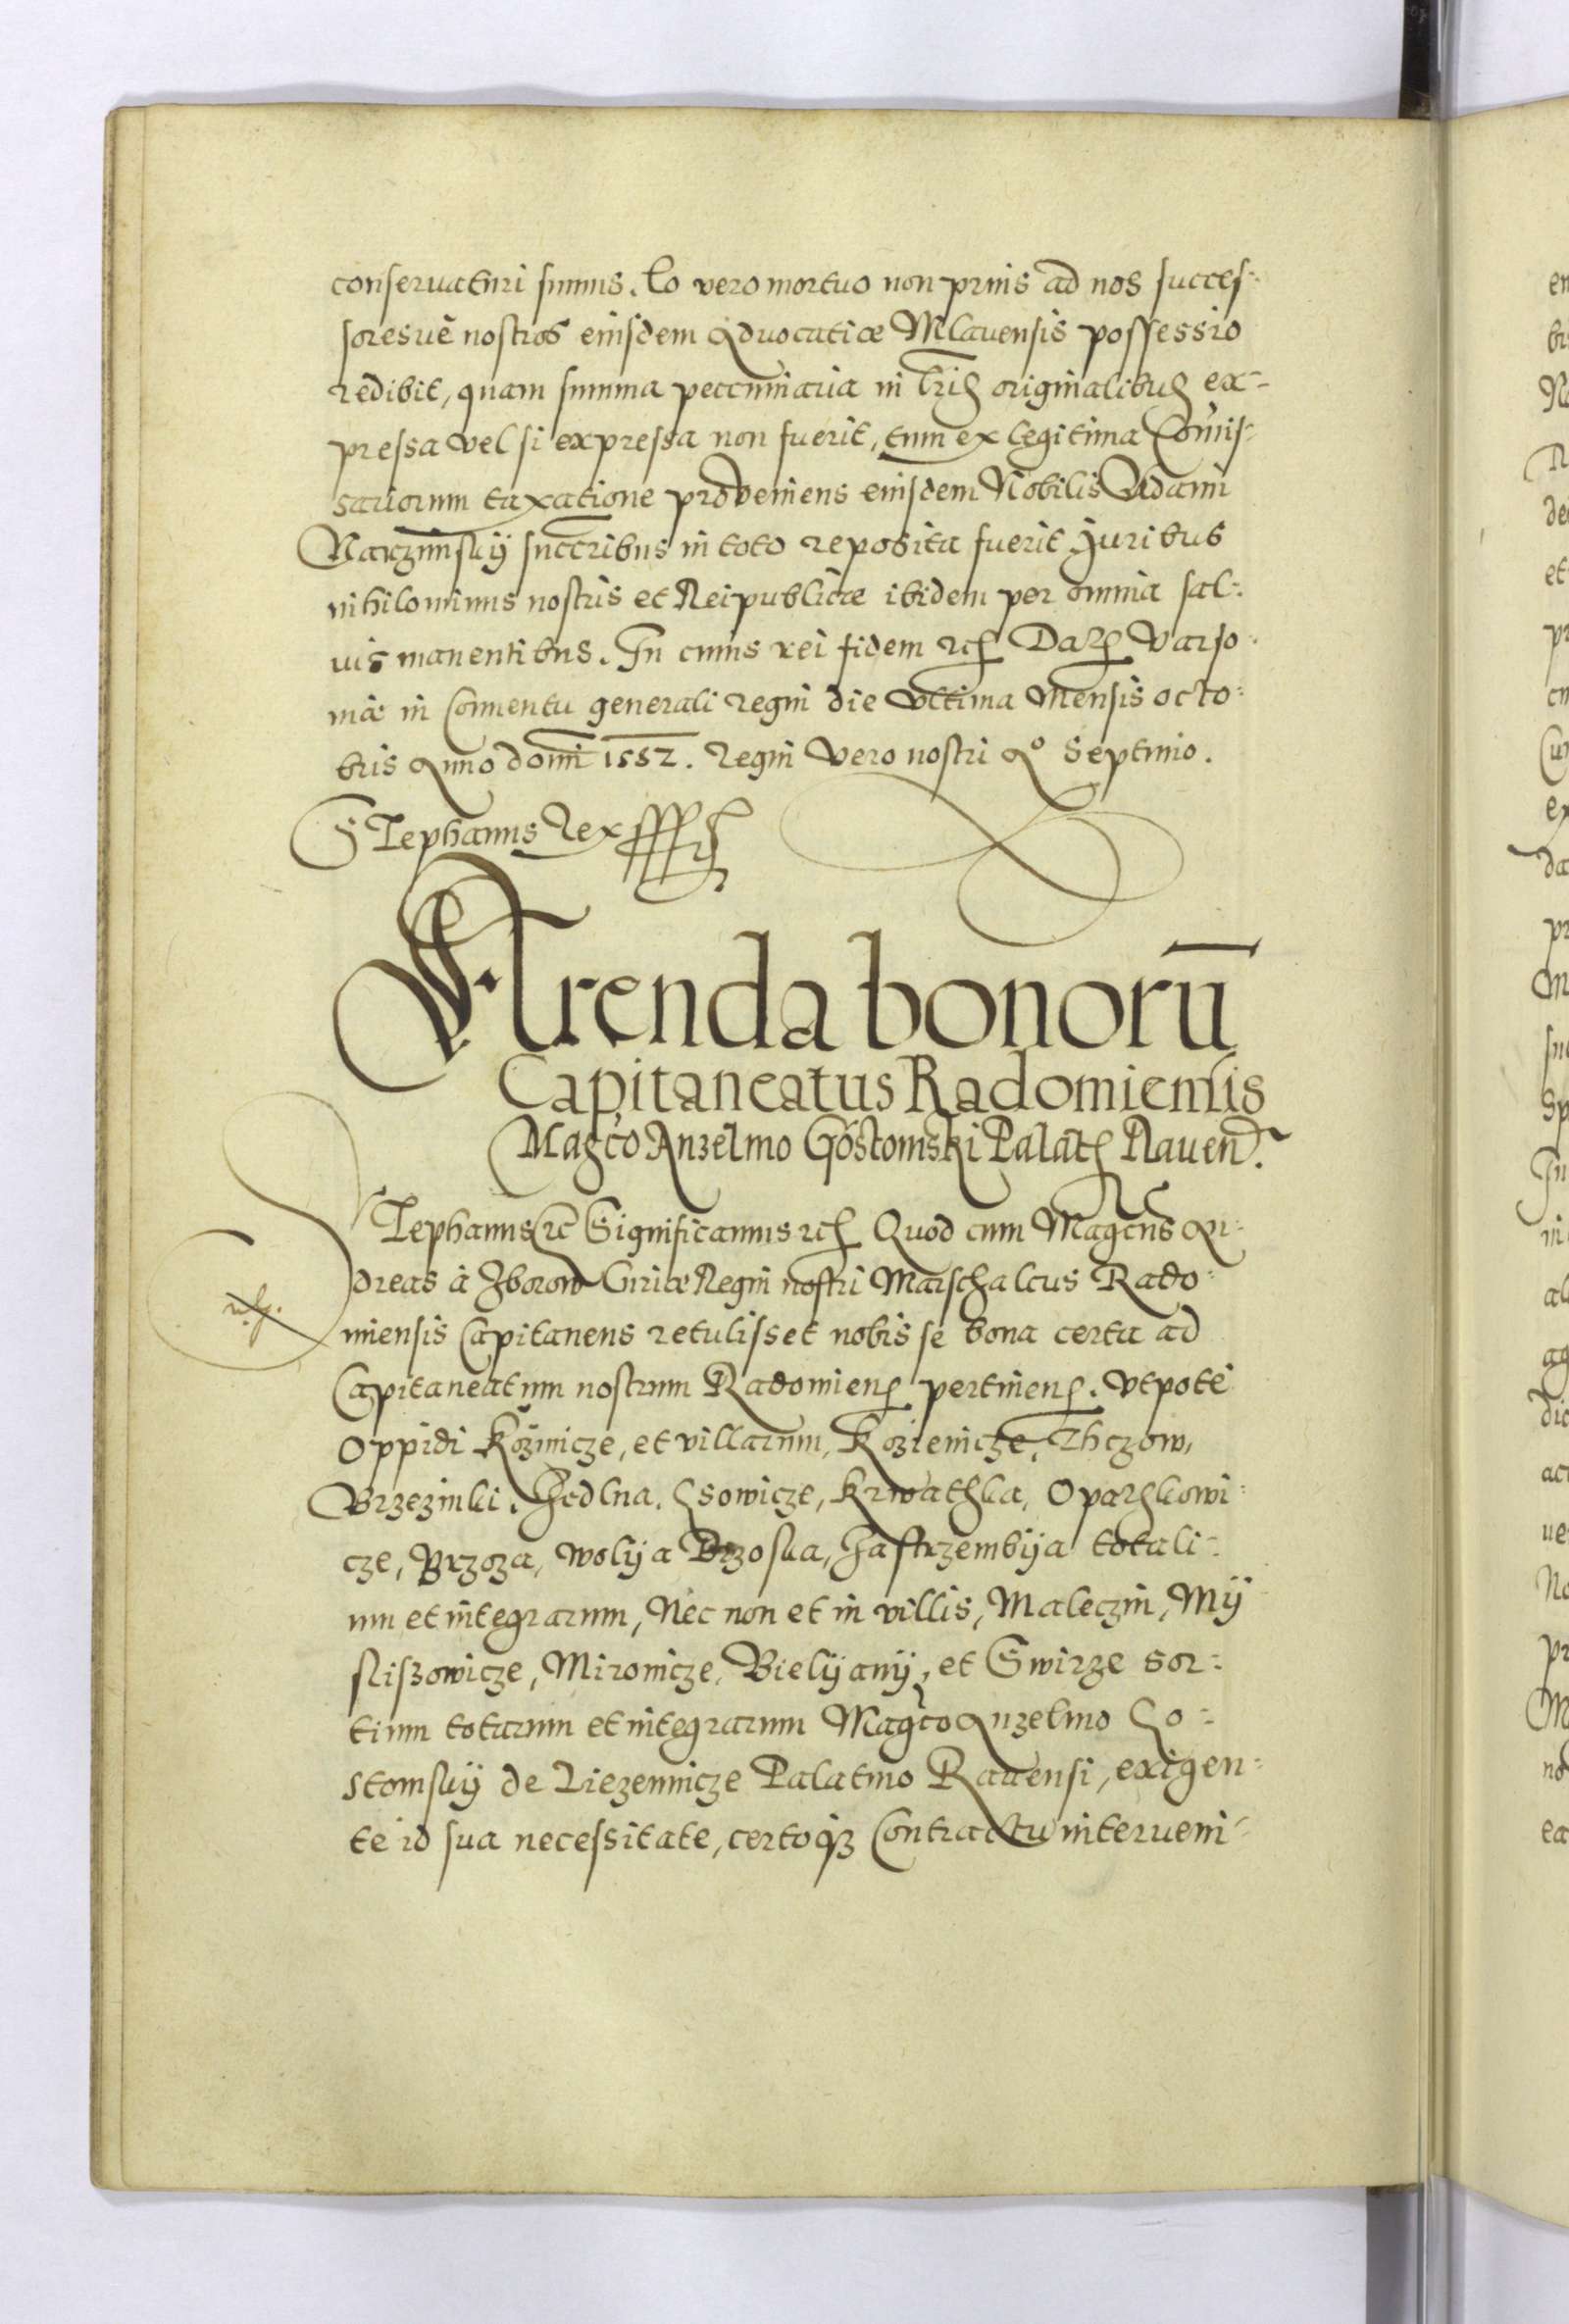 conseruaturi sumus. Eo vero mortuo non prius ad nos succes-
soresuè nostros eiusdem Aduocatiæ Mlauensis possessio
redibit, quam summa peccuniaria in lr̃is originalibus ex-
pressa vel si expressa non fuerit, tum ex legitima Com̃is-
sariorum taxatione proveniens eiusdem Nobilis Adami
Narzimskij succ̃ribus in toto reposita fuerit Juribus
nihilominus nostris et Reipublicæ ibidem per omnia sal-
uis manentibus. In cuius rei fidem etc. Dat. Varso-
uiæ in Conuentu generali regni die vltima Mensis octo-
bris Anno domi 1582. regni vero nostri Aº Septimo.
Stephanus Rex
Arenda bonorũ
Capitaneatus Radomiensis
Magco Anzelmo Gostomski Palat. Rauen.
Stephanus etc Significamus etc. Quod cum Magcus An-
dreas à Zborow Curiæ Regni nostri Marschalcus Rado-
miensis Capitaneus retulisset nobis se bona certa ad
Capitaneatum nostrum Radomien. pertinen. vtpote
Oppidi Kozinicze, et villarum, Kozienicze, Thczow,
Brzezinki, Jedlna, Lsowicze, Krwathka, Oparzkowi-
cze, Brzoza, Wolija Brzoska, Jastrzembija totali-
um et integrarum, Nec non et in villis, Maleczin, Mij
sliszowicze, Mironicze, Bielijanij, et Swirze sor-
tium totarum et integrarum Magco Anzelmo Go-
stomskij de Liezenicze Palatino Rauensi, exigen-
te id sua necessitate, certoq3 Contractu interueni-